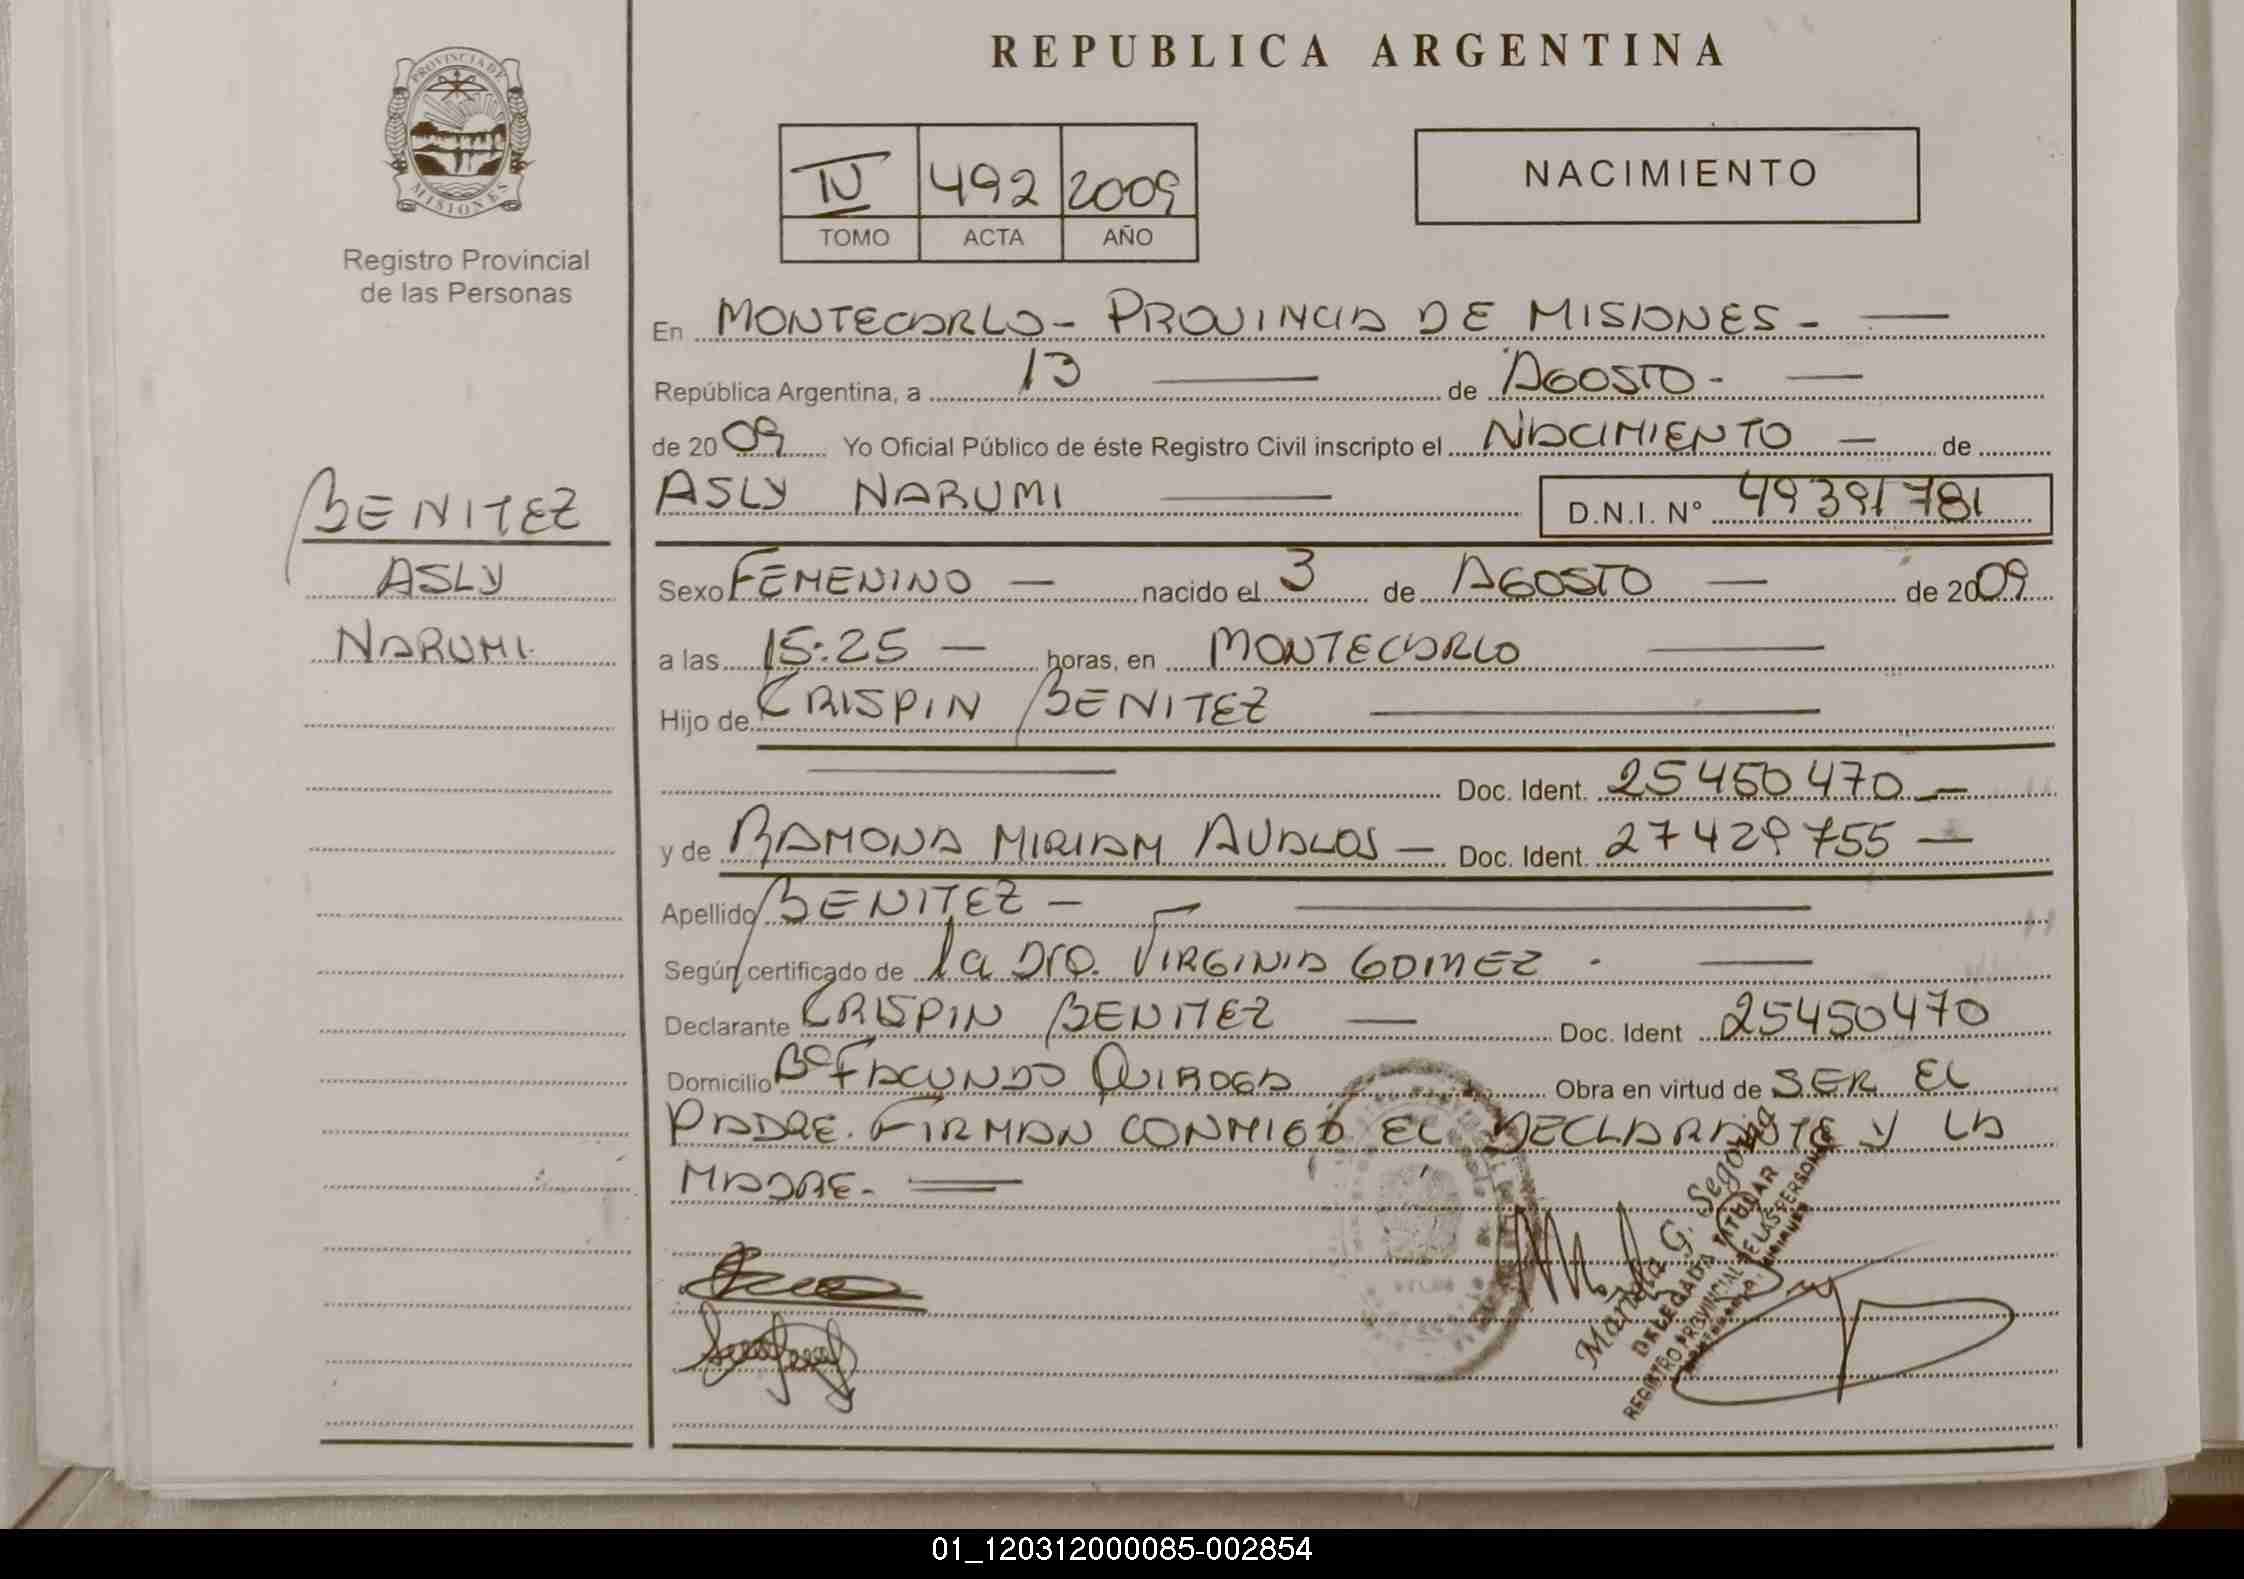 REPUBLICA ARGENTINA
PROVINCIA DE
MISIONES
Registro Provincial
de las Personas
IV 492 2009
TOMO ACTA AÑO
NACIMIENTO
En MONTECARLO - PROVINCIA DE MISIONES -
República Argentina, a 13 de AGOSTO -
de 2009 Yo Oficial Público de éste Registro Civil inscripto el NACIMIENTO de
ASLY NARUMI D.N.I. N° 49391781
BENITEZ
ASLY
NARUMI
Sexo FEMENINO nacido el 3 de AGOSTO de 2009
a las 15:25 horas, en MONTECARLO
Hijo de CRISPIN BENITEZ
Doc. Ident. 25450470
y de RAMONA MIRIAM AVALOS Doc. Ident. 27429755
Apellido BENITEZ
Según certificado de la Dra. VIRGINIA GOMEZ
Declarante CRISPIN BENITEZ Doc. Ident 25450470
Domicilio B° FACUNDO QUIROGA Obra en virtud de SER EL
PADRE. FIRMAN CONMIGO EL DECLARANTE Y LA
MADRE.
Mariela G. Segovia
DELEGADA TITULAR
REGISTRO PROVINCIAL DE LAS PERSONAS
01_120312000085-002854